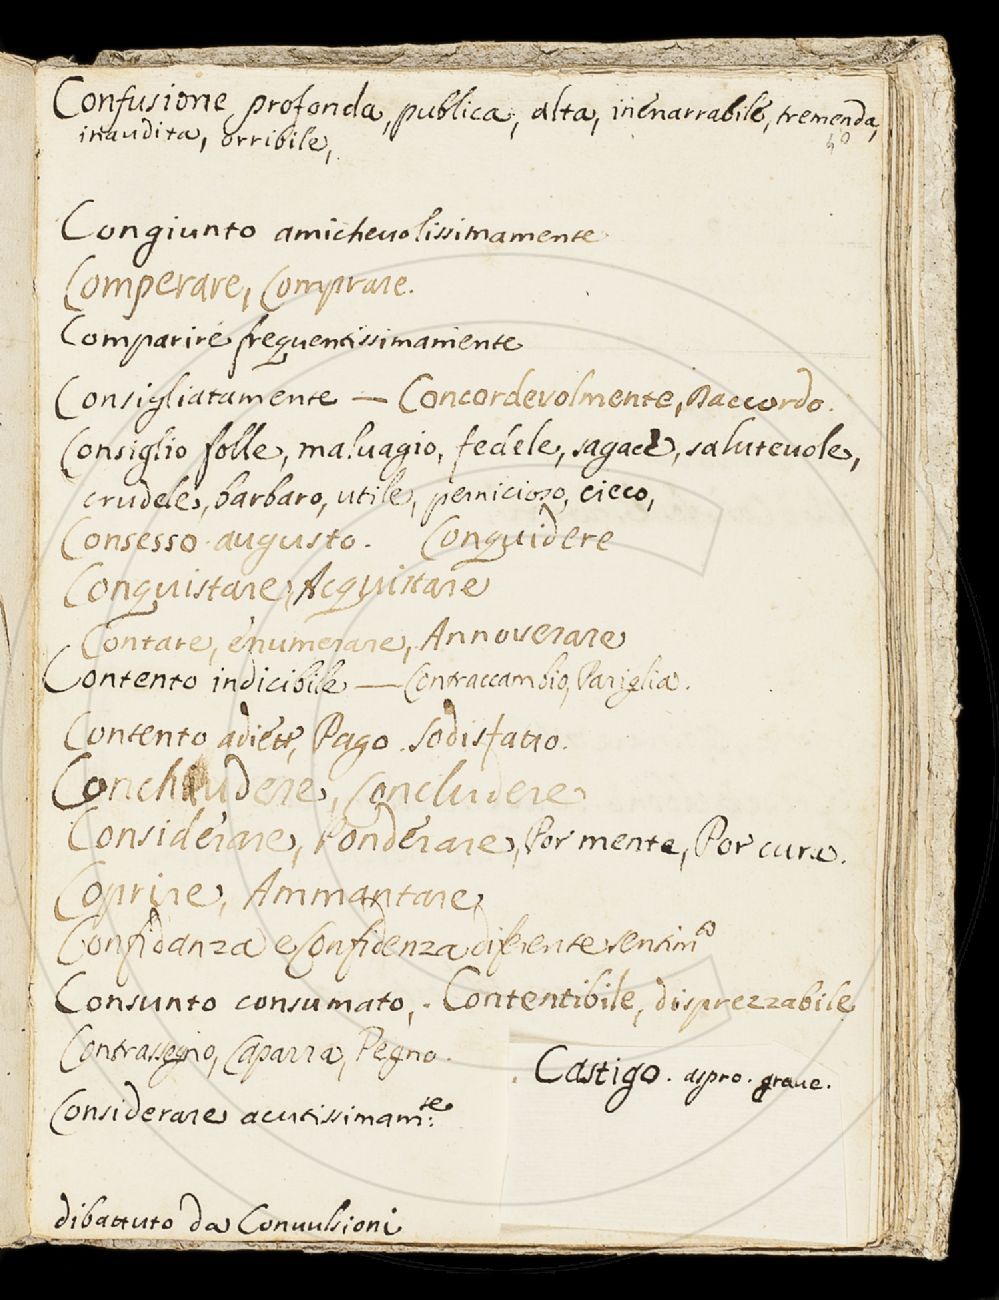 Confusione profonda, publica, alta, inenarrabile, tremenda,
inaudita, orribile,
Congiunto amicheuolissimamente
Comperare, Comprare.
Comparire frequentissimamente
Consigliatamente — Concordevolmente, Daccordo.
Consiglio folle, maluagio, fedele, sagace, saluteuole,
crudele, barbaro, utile, pernicioso, cieco,
Consesso augusto. Conquidere
Conquistare, Acquistare
Contare, enumerare, Annoverare
Contento indicibile — Contraccambio, Pariglia.
Contento adiett, Pago. Sodisfatto.
Conchiudere, Concludere
Considerare, Ponderare, Por mente, Por cura.
Coprire, Ammantare,
Confidanza e Confidenza diferente sentimto
Consunto consumato, . Contentibile, disprezzabile
Contrassegno, Caparra, Pegno.
Castigo. aspro. graue.
Considerare acutissimamte:
dibattuto da Conuulsioni